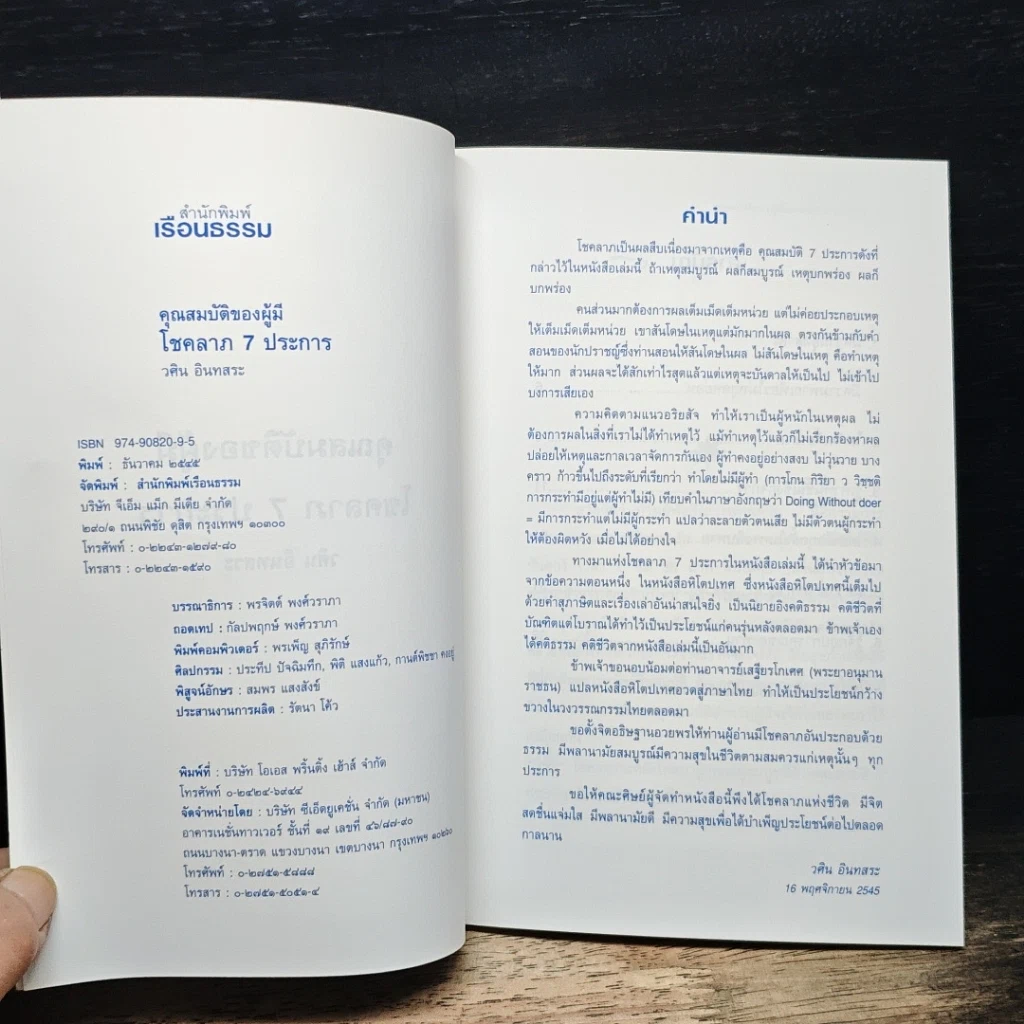 สำนักพิมพ์
เรือนธรรม
คุณสมบัติของผู้มี
โชคลาภ 7 ประการ
วศิน อินทสระ
ISBN 974-90820-9-5
พิมพ์ : ธันวาคม ๒๕๔๕
จัดพิมพ์ : สำนักพิมพ์เรือนธรรม
บริษัท จีเอ็ม แม็ก มีเดีย จำกัด
๒๙๐/๑ ถนนพิชัย ดุสิต กรุงเทพฯ ๑๐๓๐๐
โทรศัพท์ : ๐-๒๒๔๓-๑๒๗๙-๘๐
โทรสาร : ๐-๒๒๔๓-๑๕๙๐
บรรณาธิการ : พรจิตต์ พงศ์วราภา
ถอดเทป : กัลปพฤกษ์ พงศ์วราภา
พิมพ์คอมพิวเตอร์ : พรเพ็ญ สุภิรักษ์
ศิลปกรรม : ประทีป ปัจฉิมทึก, พิติ แสงแก้ว, กานต์พิชชา คงอยู่
พิสูจน์อักษร : สมพร แสงสังข์
ประสานงานการผลิต : รัตนา โค้ว
พิมพ์ที่ : บริษัท โอเอส พริ้นติ้ง เฮ้าส์ จำกัด
โทรศัพท์ ๐-๒๔๒๔-๖๙๔๔
จัดจำหน่ายโดย : บริษัท ซีเอ็ดยูเคชั่น จำกัด (มหาชน)
อาคารเนชั่นทาวเวอร์ ชั้นที่ ๑๙ เลขที่ ๔๖/๘๗-๙๐
ถนนบางนา-ตราด แขวงบางนา เขตบางนา กรุงเทพฯ ๑๐๒๖๐
โทรศัพท์ : ๐-๒๗๕๑-๕๘๘๘
โทรสาร : ๐-๒๗๕๑-๕๐๕๑-๔
คำนำ
โชคลาภเป็นผลสืบเนื่องมาจากเหตุคือ คุณสมบัติ 7 ประการดังที่
กล่าวไว้ในหนังสือเล่มนี้ ถ้าเหตุสมบูรณ์ ผลก็สมบูรณ์ เหตุบกพร่อง ผลก็
บกพร่อง
คนส่วนมากต้องการผลเต็มเม็ดเต็มหน่วย แต่ไม่ค่อยประกอบเหตุ
ให้เต็มเม็ดเต็มหน่วย เขาสันโดษในเหตุแต่มักมากในผล ตรงกันข้ามกับคำ
สอนของนักปราชญ์ซึ่งท่านสอนให้สันโดษในผล ไม่สันโดษในเหตุ คือทำเหตุ
ให้มาก ส่วนผลจะได้สักเท่าไรสุดแล้วแต่เหตุจะบันดาลให้เป็นไป ไม่เข้าไป
บงการเสียเอง
ความคิดตามแนวอริยสัจ ทำให้เราเป็นผู้หนักในเหตุผล ไม่
ต้องการผลในสิ่งที่เราไม่ได้ทำเหตุไว้ แม้ทำเหตุไว้แล้วก็ไม่เรียกร้องหาผล
ปล่อยให้เหตุและกาลเวลาจัดการกันเอง ผู้ทำคงอยู่อย่างสงบ ไม่วุ่นวาย บาง
คราว ก้าวขึ้นไปถึงระดับที่เรียกว่า ทำโดยไม่มีผู้ทำ (การโกน กิริยา ว วิชฺชติ
การกระทำมีอยู่แต่ผู้ทำไม่มี) เทียบคำในภาษาอังกฤษว่า Doing Without doer
= มีการกระทำแต่ไม่มีผู้กระทำ แปลว่าละลายตัวตนเสีย ไม่มีตัวตนผู้กระทำ
ให้ต้องผิดหวัง เมื่อไม่ได้อย่างใจ
ทางมาแห่งโชคลาภ 7 ประการในหนังสือเล่มนี้ ได้นำหัวข้อมา
จากข้อความตอนหนึ่ง ในหนังสือหิโตปเทศ ซึ่งหนังสือหิโตปเทศนี้เต็มไป
ด้วยคำสุภาษิตและเรื่องเล่าอันน่าสนใจยิ่ง เป็นนิยายอิงคติธรรม คติชีวิตที่
บัณฑิตแต่โบราณได้ทำไว้เป็นประโยชน์แก่คนรุ่นหลังตลอดมา ข้าพเจ้าเอง
ได้คติธรรม คติชีวิตจากหนังสือเล่มนี้เป็นอันมาก
ข้าพเจ้าขอนอบน้อมต่อท่านอาจารย์เสฐียรโกเศศ (พระยาอนุมาน
ราชธน) แปลหนังสือหิโตปเทศอวดสู่ภาษาไทย ทำให้เป็นประโยชน์กว้าง
ขวางในวงวรรณกรรมไทยตลอดมา
ขอตั้งจิตอธิษฐานอวยพรให้ท่านผู้อ่านมีโชคลาภอันประกอบด้วย
ธรรม มีพลานามัยสมบูรณ์มีความสุขในชีวิตตามสมควรแก่เหตุนั้นๆ ทุก
ประการ
ขอให้คณะศิษย์ผู้จัดทำหนังสือนี้พึงได้โชคลาภแห่งชีวิต มีจิต
สดชื่นแจ่มใส มีพลานามัยดี มีความสุขเพื่อได้บำเพ็ญประโยชน์ต่อไปตลอด
กาลนาน
วศิน อินทสระ
16 พฤศจิกายน 2545